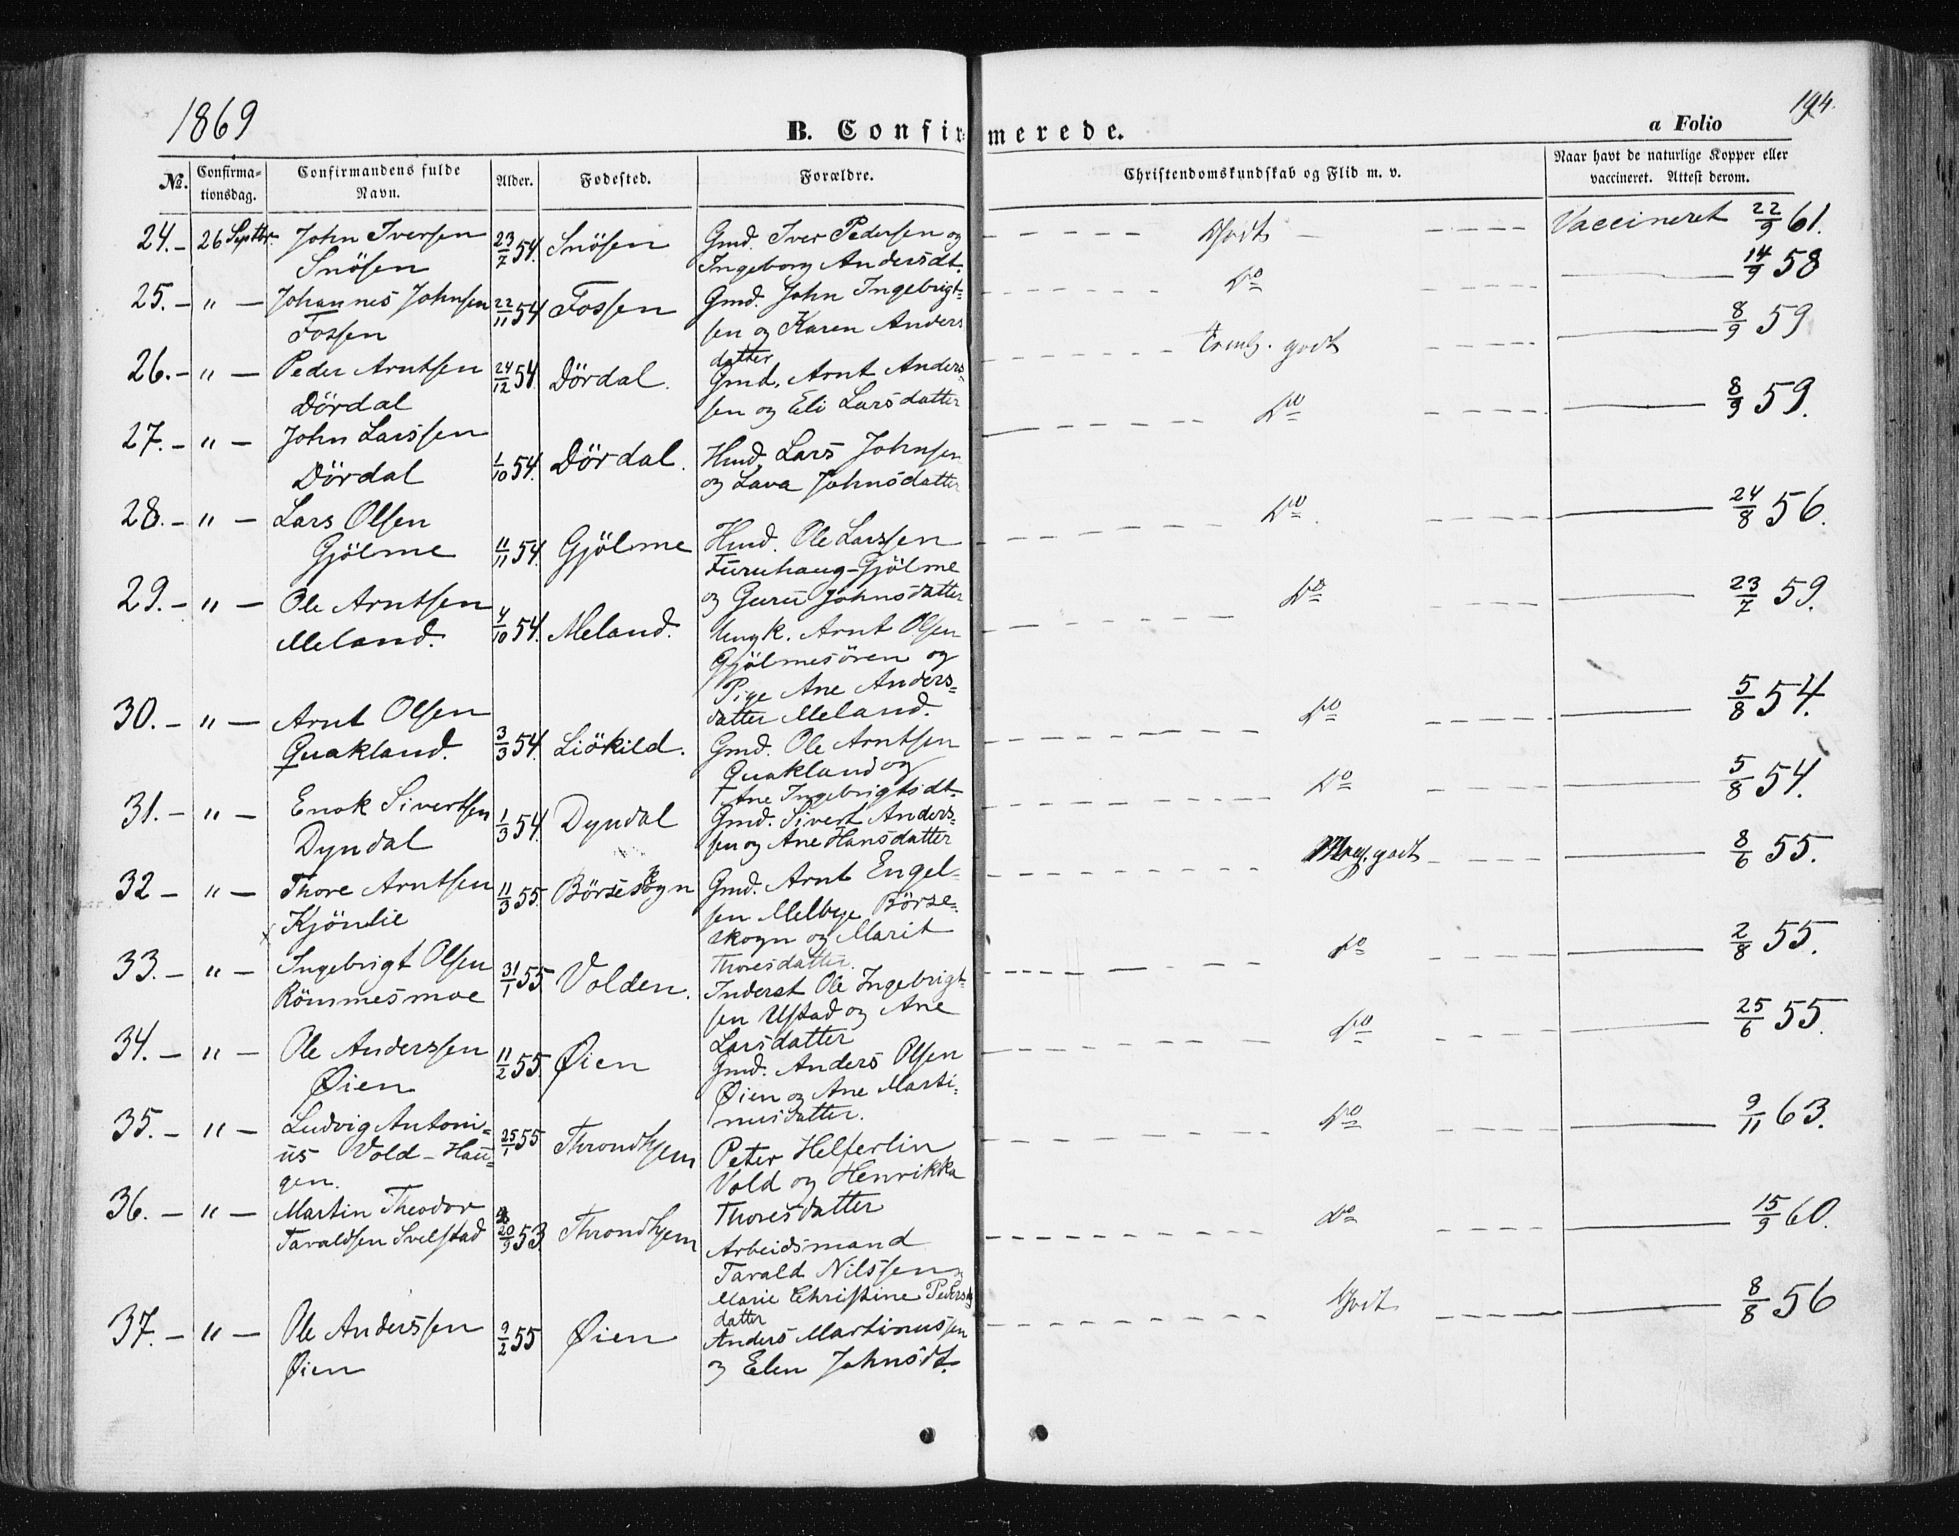 1869
194.
B. Confirmerede.
a Folio
No. Confirmationsdag. Confirmandens fulde Navn. Alder. Fødested. Forældre. Christendomskundskab og Flid m. v. Naar havt de naturlige Kopper eller vaccineret. Attest derom.
24. - 26 Septbr. John Iversen 23/7 54. Snösen Gmd. Iver Pedersen og Godt Vaccineret 22/9 61.
Snösen Ingeborg Andersdt.
25. - " - Johannes Johnsen 22/11 54 Fossen Gmd. John Ingebrigt- Do 14/9 58
Fossen sen og Karen Anders
datter
26. - " - Peder Arntsen 24/12 54 Dördal. Gmd. Arnt Anders- Temlg. godt 8/9 59
Dördal sen og Eli Larsdatter
27. - " - John Larssen 1/10 54. Dördal. Hmd. Lars Johnsen Do 8/9 59.
Dördal og Lava Johnsdatter
28. - " - Lars Olsen 11/11 54. Gjölme Hmd. Ole Larssen Do. 24/8 56.
Gjölme Furuhaug-Gjölme
og Guru Johnsdatter
29. - " - Ole Arntsen 4/10 54. Meland. Ungk. Arnt Olsen Do 23/7 59.
Meland. Gjölmesören og
Pige Ane Anders-
datter Meland.
30. - " - Arnt Olsen 3/3 54. Liökild. Gmd. Ole Arntsen Do 5/8 54.
Quakland. Quakland og
Ane Ingebrigtsdt.
31. - " - Enok Sivertsen 1/3 54. Dyndal Gmd. Sivert Anders- Do 5/8 54.
Dyndal sen og Ane Hansdatter
32 - " - Thore Arntsen 11/3 55. Börseskogn Gmd. Arnt Engel- Meg. godt 8/6 55.
Kjönlie sen Melbye Börse-
skogn og Marit
Thoresdatter.
33. - " - Ingebrigt Olsen 31/1 55 Volden. Inderst Ole Ingebrigt- Do 2/8 55.
Römmesmoe sen Ustad og Ane
Larsdatter
34. - " - Ole Anderssen 11/2 55. Øien Gmd. Anders Olsen Do 25/6 55.
Øien Øien og Ane Marti-
nusdatter.
35. - " - Ludvig Antoni- 25/1 55 Throndhjem Peter Helferlin Do 9/11 63.
us Vold-Hau- Vold og Henrikka
gen. Thoresdatter
36. - " - Martin Theodor 20/9 53. Throndhjem Arbeidsmand Do 15/9 60.
Taraldsen Svelstad Tarald Nilssen
Marie Christine Peders
datter
37. - " - Ole Anderssen 9/2 55 Øien Anders Martinussen Godt 8/8 56
Øien og Elen Johnsdt.